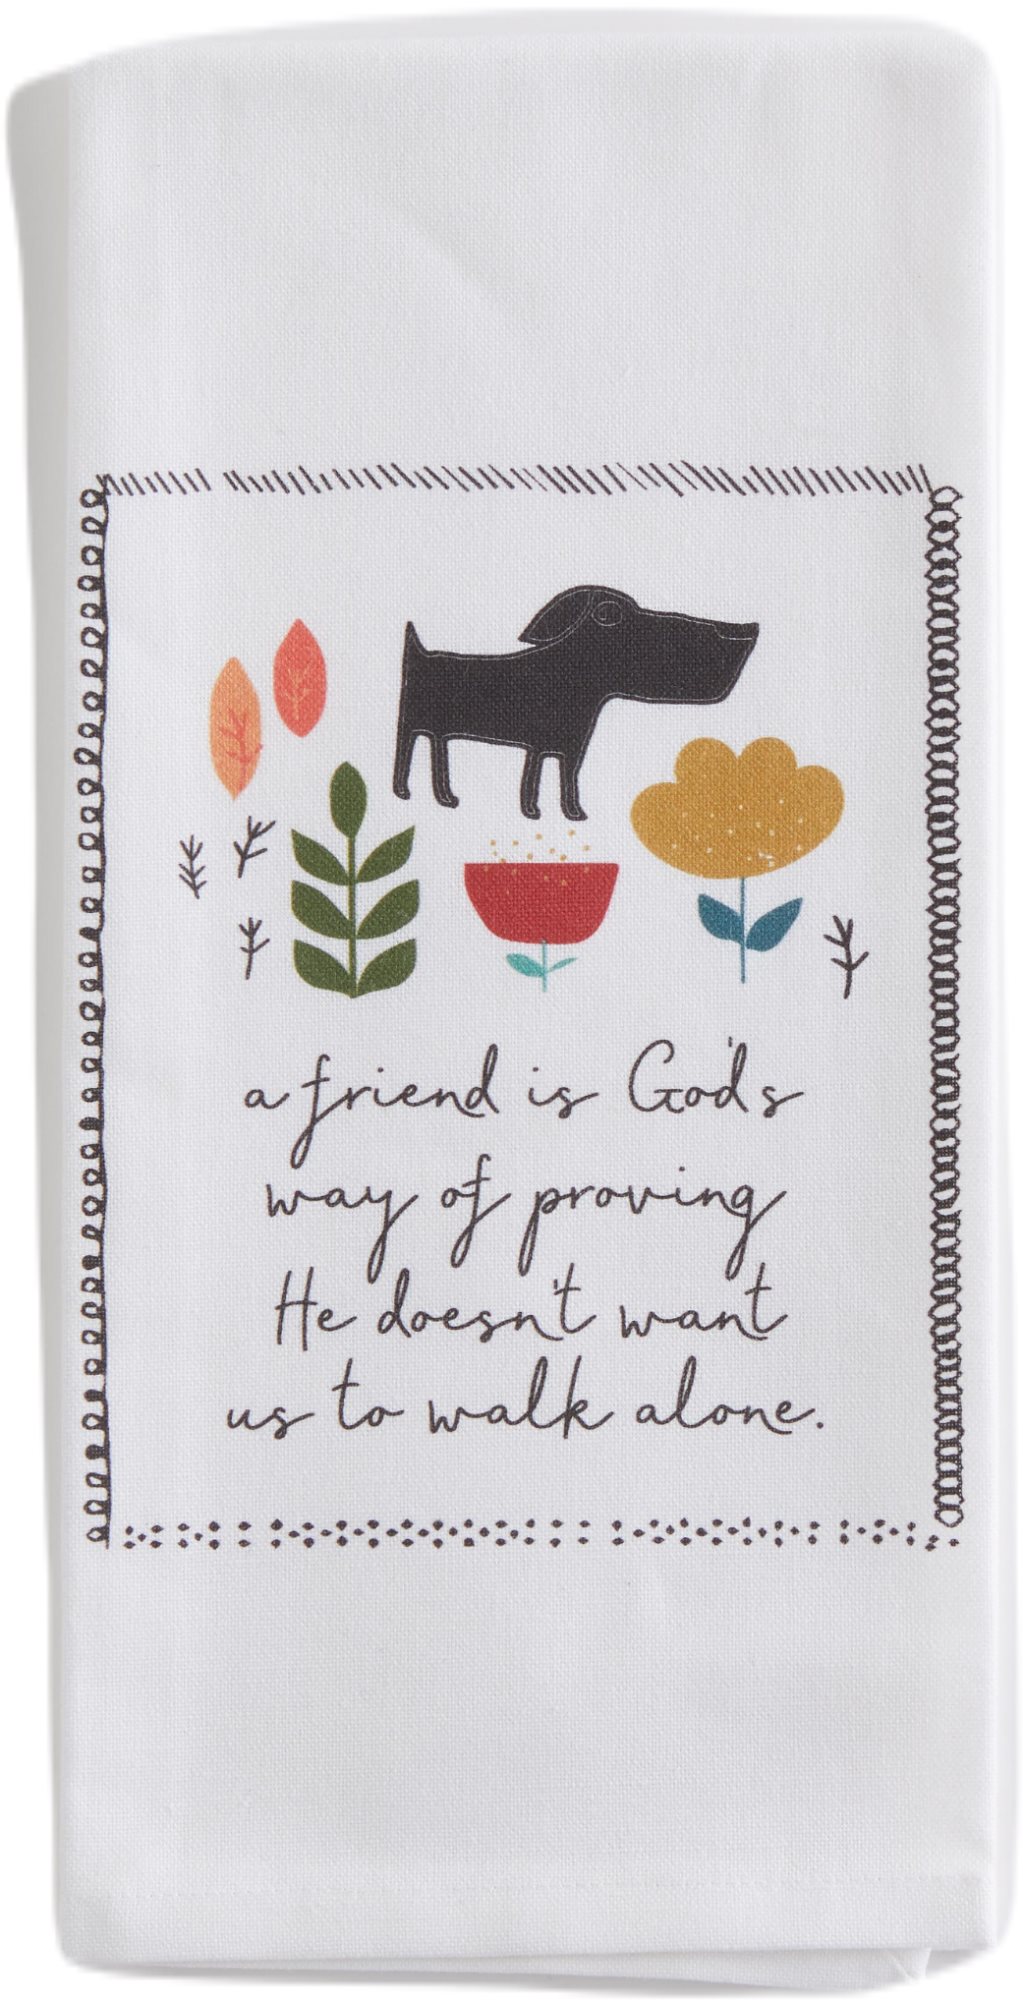 a friend is God's
way of proving
He doesn't want
us to walk alone.